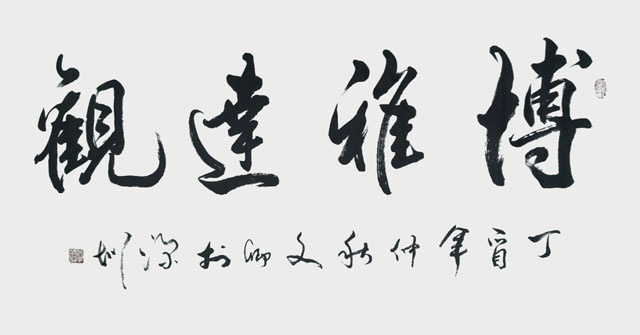 博雅達觀
丁酉年仲秋文卿於深圳